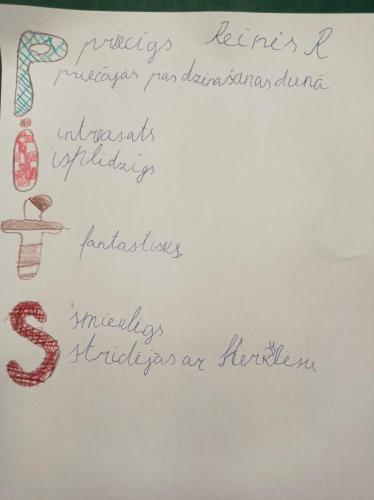 Pits
priecīgs Reinis R
priecājās par dzimšanas dienā
intresats
isplidzigs
fantastisks
smieklīgs
strīdējās ar